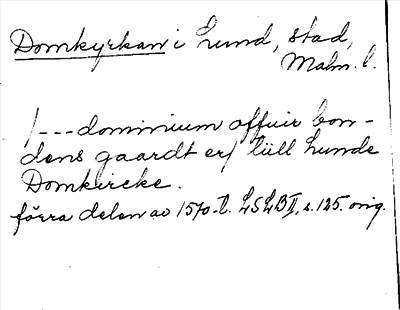 Domkyrkan i Lund, stad,
Malm. l.
/---dominium offuir bon-
dens gaardt er/ tiill Lunde
Domkircke.
förra delen av 1570-t. LSLB II, s. 125. orig.